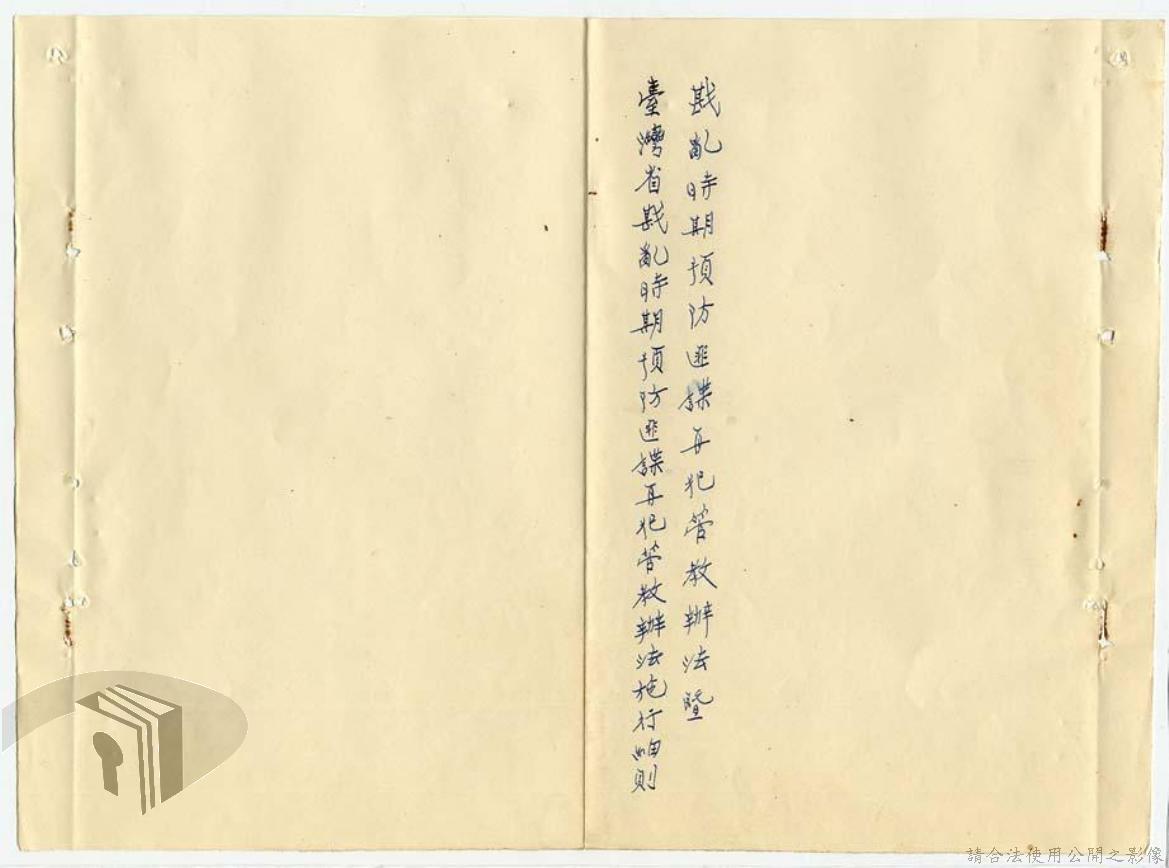 戡亂時期預防匪諜再犯管教辦法暨
臺灣省戡亂時期預防匪諜再犯管教辦法施行細則
請合法使用公開之影像